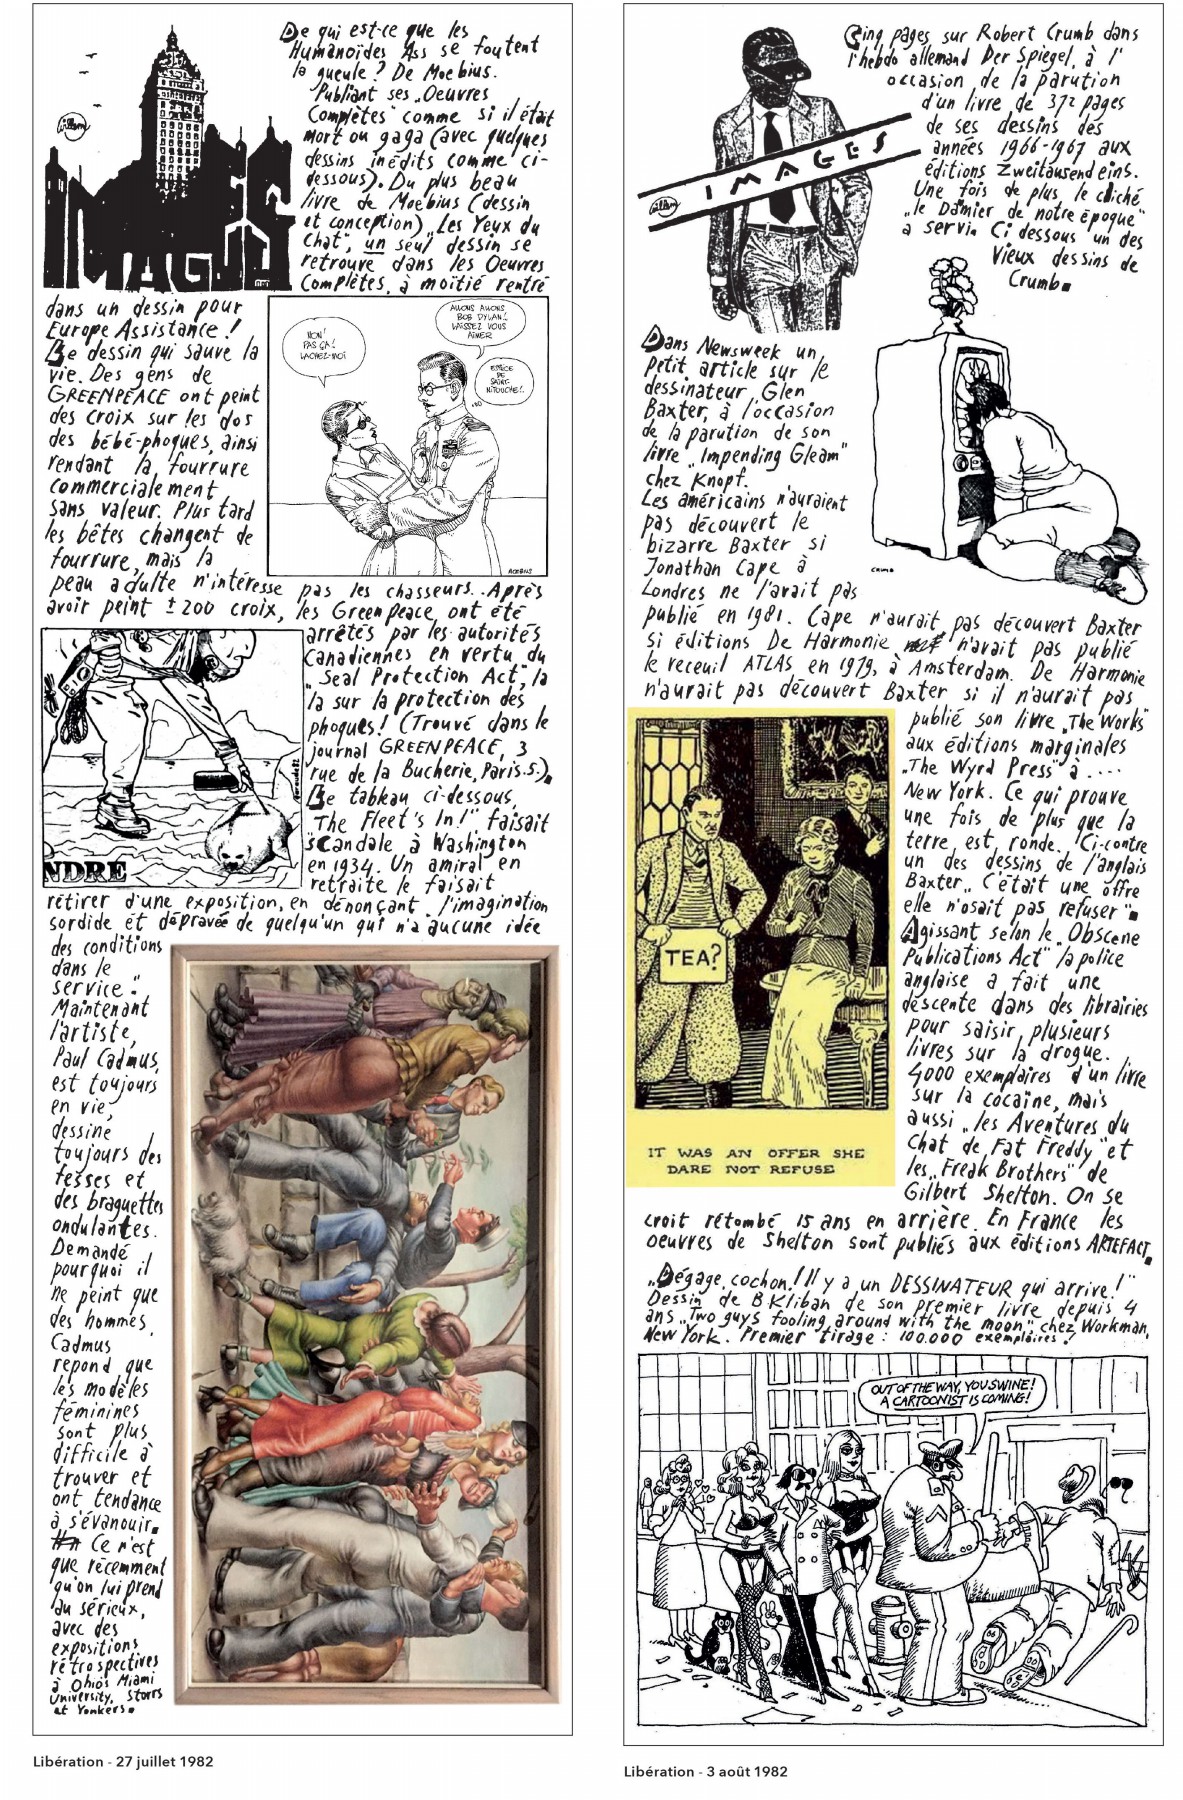 IMAGES
willem
De qui est-ce que les
Humanoïdes Ass se foutent
la gueule ? De Moebius.
Publiant ses „Oeuvres
Complètes" comme si il était
mort ou gaga (avec quelques
dessins inédits comme ci-
dessous). Du plus beau
livre de Moebius (dessin
et conception) „Les Yeux du
Chat", un seul dessin se
retrouve dans les Oeuvres
Complètes, à moitié rentré
dans un dessin pour
Europe Assistance !
Le dessin qui sauve la
vie. Des gens de
GREENPEACE ont peint
des croix sur les dos
des bébé-phoques, ainsi
rendant la fourrure
commercialement
sans valeur. Plus tard
les bêtes changent de
fourrure, mais la
peau adulte n'intéresse pas les chasseurs. Après
avoir peint ± 200 croix, les Greenpeace ont été
NON!
PAS ÇA!
LACHEZ-MOI
ALLONS ALLONS
BOB DYLAN!
LAISSEZ VOUS
AIMER
ESPÈCE
DE
SAINT-
NITOUCHE!..
MOEBIUS
arrêtés par les autorités
Canadiennes en vertu du
„Seal Protection Act", la
la sur la protection des
phoques ! (Trouvé dans le
journal GREENPEACE, 3
rue de la Bucherie, Paris.5.).
Le tableau ci-dessous,
"The Fleet's In!" faisait
scandale à Washington
en 1934. Un amiral en
retraite le faisait
NDRE
retirer d'une exposition, en dénonçant „l'imagination
sordide et dépravée de quelqu'un qui n'a aucune idée
des conditions
dans le
service".
Maintenant
l'artiste,
Paul Cadmus,
est toujours
en vie,
dessine
toujours des
fesses et
des braguettes
ondulantes.
Demandé
pourquoi il
ne peint que
des hommes,
Cadmus
repond que
les modèles
féminines
sont plus
difficile à
trouver et
ont tendance
à s'évanouir.
Ce n'est
que récemment
qu'on lui prend
au sérieux,
avec des
expositions
rétrospectives
à Ohio's Miami
University, Storrs
et Yonkers.
Libération - 27 juillet 1982
IMAGES
willem
Cinq pages sur Robert Crumb dans
l'hebdo allemand Der Spiegel, à l'
occasion de la parution
d'un livre de 372 pages
de ses dessins des
années 1966-1967 aux
éditions Zweitausendeins.
Une fois de plus le cliché
„le Damier de notre époque"
a servi. Ci dessous un des
vieux dessins de
Crumb.
CRUMB
Dans Newsweek un
petit article sur le
dessinateur Glen
Baxter, à l'occasion
de la parution de son
livre „Impending Gleam"
chez Knopf.
Les américains n'auraient
pas découvert le
bizarre Baxter si
Jonathan Cape à
Londres ne l'avait pas
publié en 1981. Cape n'aurait pas découvert Baxter
si éditions De Harmonie n'avait pas publié
le receuil ATLAS en 1979, à Amsterdam. De Harmonie
n'aurait pas découvert Baxter si il n'aurait pas
publié son livre „The Works"
aux éditions marginales
„The Wyrd Press" à ....
New York. Ce qui prouve
une fois de plus que la
terre est ronde. Ci-contre
un des dessins de l'anglais
Baxter „C'était une offre
elle n'osait pas refuser".
TEA?
IT WAS AN OFFER SHE
DARE NOT REFUSE
Agissant selon le „Obscene
Publications Act" la police
anglaise a fait une
descente dans des librairies
pour saisir plusieurs
livres sur la drogue.
4000 exemplaires d'un livre
sur la cocaïne, mais
aussi „les Aventures du
Chat de Fat Freddy" et
les „Freak Brothers" de
Gilbert Shelton. On se
croit retombé 15 ans en arrière. En France les
oeuvres de Shelton sont publiés aux éditions ARTEFACT.
„Dégage, cochon ! Il y a un DESSINATEUR qui arrive !"
Dessin de B Kliban de son premier livre depuis 4
ans „Two guys fooling around with the moon" chez Workman,
New York. Premier tirage : 100.000 exemplaires !
OUT OF THE WAY, YOU SWINE!
A CARTOONIST IS COMING!
Libération - 3 août 1982